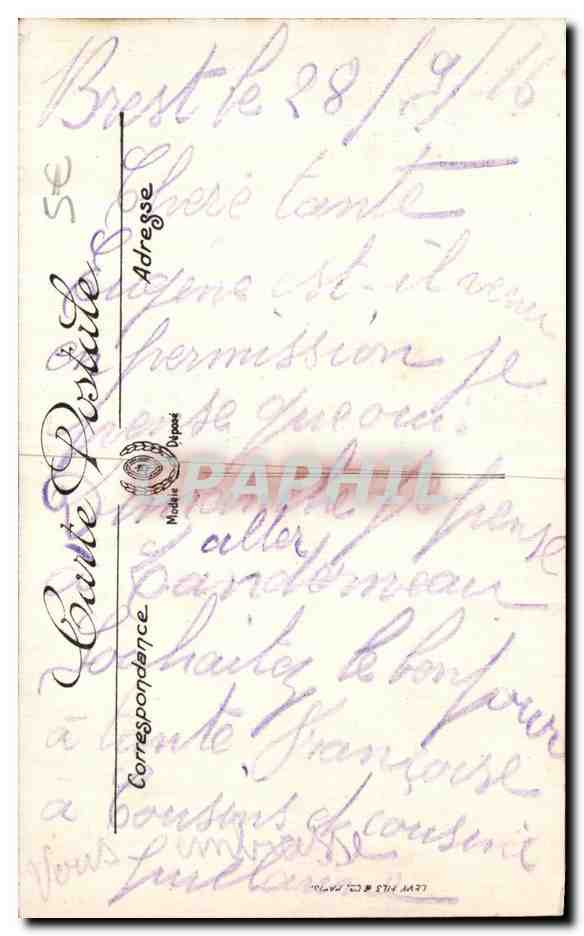 Brest le 28/9/16
Chere tante
Eugène est-il venu
permission je
pense que oui.
Dimanche je pense
aller
Landerneau
Souhaitez le bonjour
à tante Françoise
à Cousins et cousine
Vous embrasse
Carte Postale
Adresse
Correspondance
Modèle Déposé
LEVY FILS & Cie, PARIS.
5€
DAPHIL